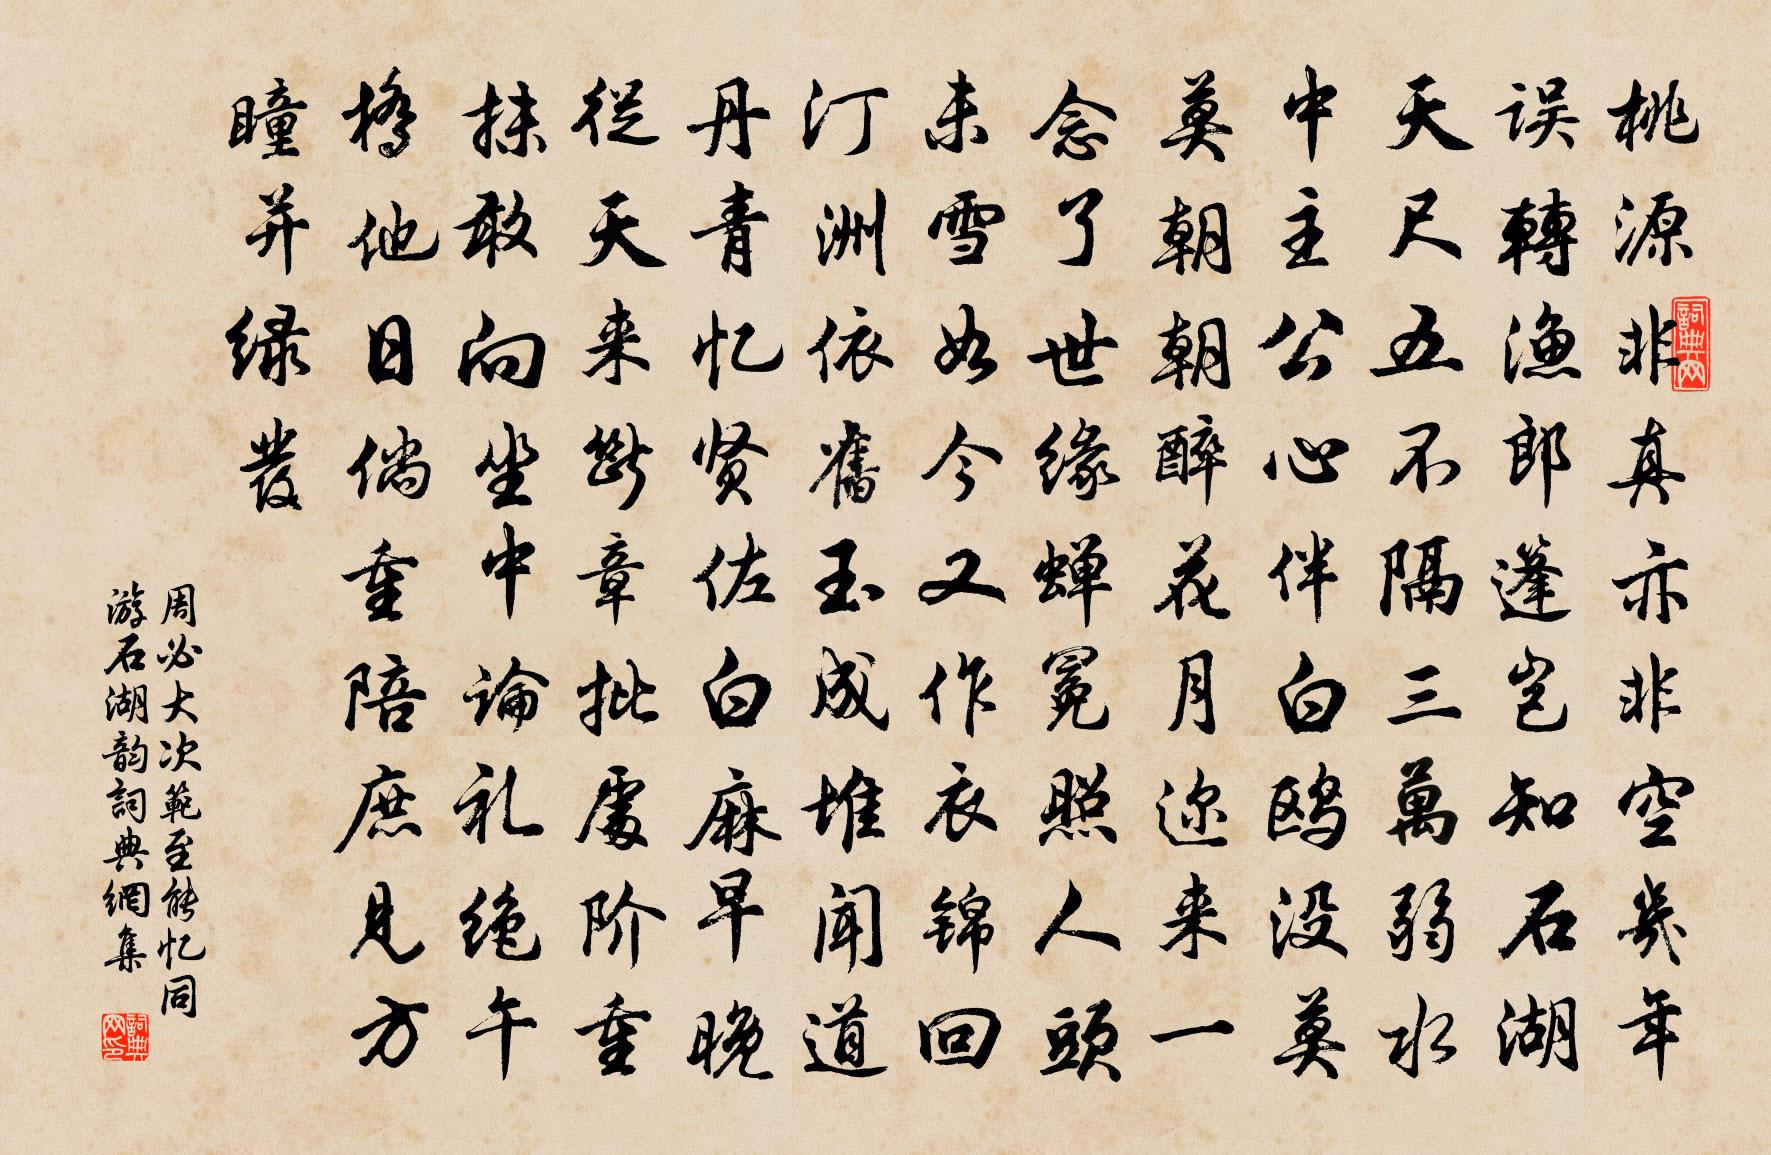 桃源非真亦非空幾年
误轉漁郎蓬岂知石湖
天尺五不隔三萬弱水
中主公心伴白鸥没莫
莫朝朝醉花月迩来一
念了世缘蝉冕照人頭
未雪如今又作衣锦回
汀洲依舊玉成堆闻道
丹青忆贤佐白麻早晚
從天来斷章批處阶重
抹敢向坐中論礼绝午
橋他日倘重陪庶见方
瞳并绿發
周必大次範至能忆同
游石湖韵詞典網集
詞典网
詞典网印